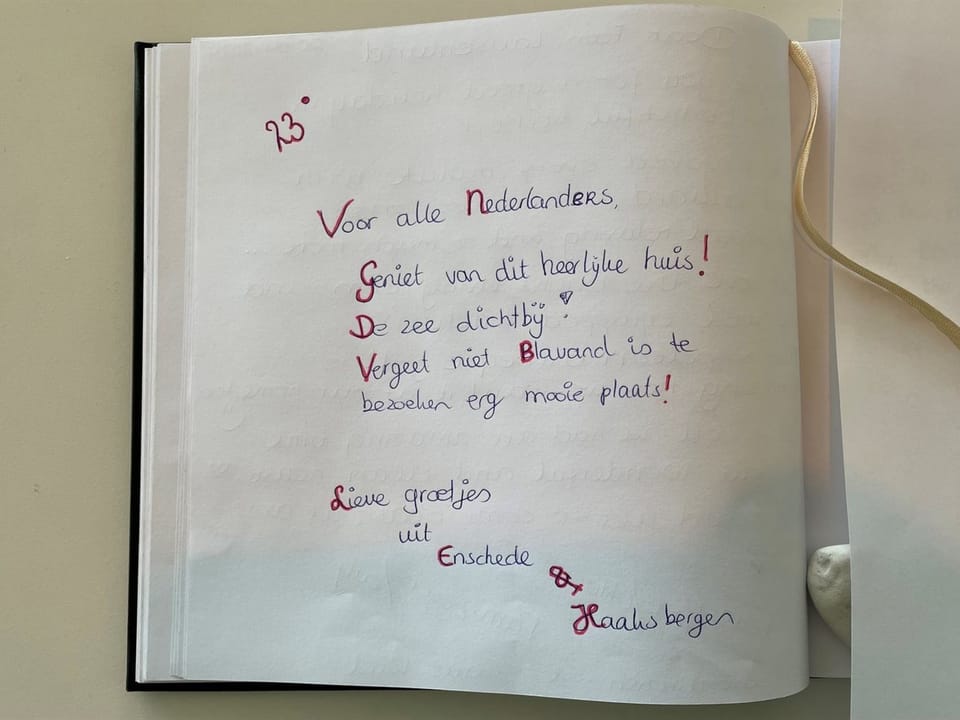 23°
Voor alle NederlandERS,
Geniet van dit heerlijke huis!
De zee dichtbij!
Vergeet niet Blavand is te
bezoeken erg mooie plaats!
Lieve groetjes
uit
Enschede
&
Haaksbergen